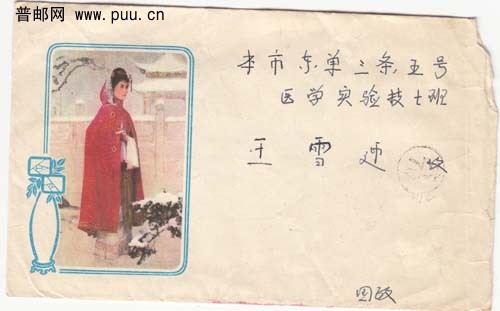 普邮网
www.puu.cn
本市东单三条五号
医学实验技士班
王雪 收